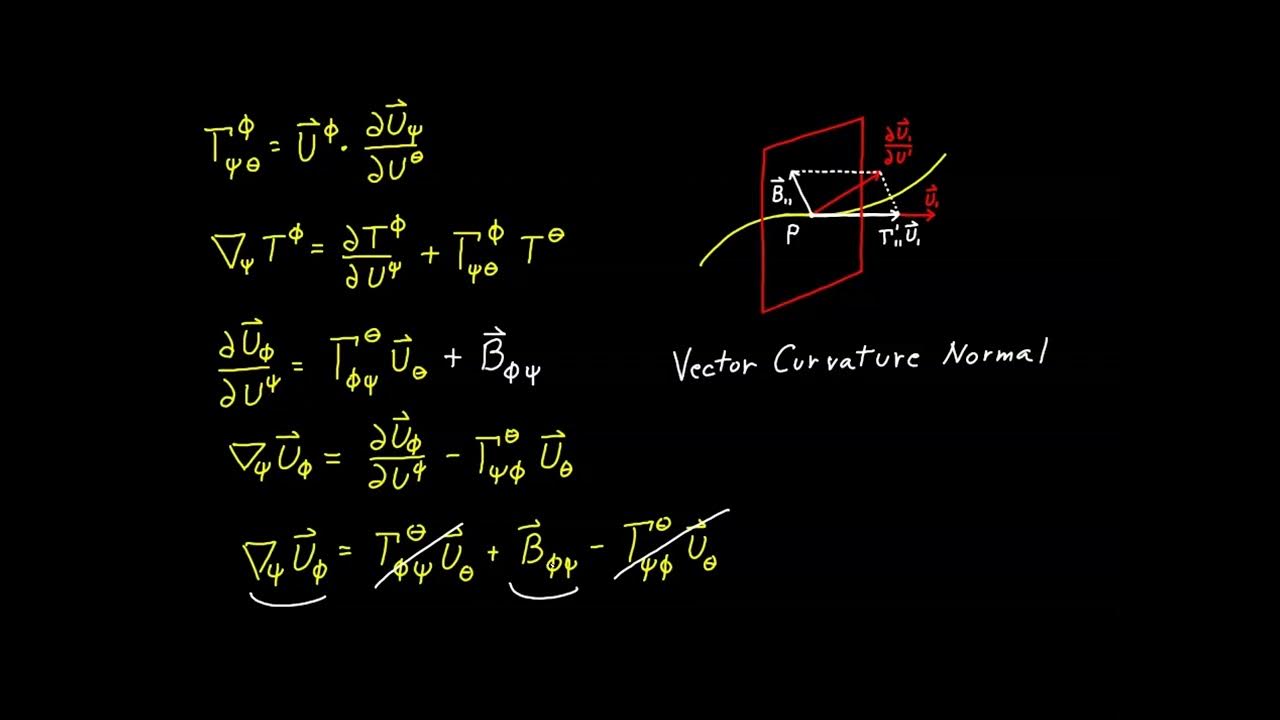 Γ^ϕ_ψθ = U⃗^ϕ · ∂U⃗_ψ/∂U^θ
∇_ψ T^ϕ = ∂T^ϕ/∂U^ψ + Γ^ϕ_ψθ T^θ
∂U⃗_ϕ/∂U^ψ = Γ^θ_ϕψ U⃗_θ + B⃗_ϕψ
∇_ψ U⃗_ϕ = ∂U⃗_ϕ/∂U^ψ - Γ^θ_ψϕ U⃗_θ
∇_ψ U⃗_ϕ = Γ^θ_ϕψ U⃗_θ + B⃗_ϕψ - Γ^θ_ψϕ U⃗_θ
∂U⃗_1/∂U^1
B⃗_11
U⃗_1
P
Γ^1_11 U⃗_1
Vector Curvature Normal